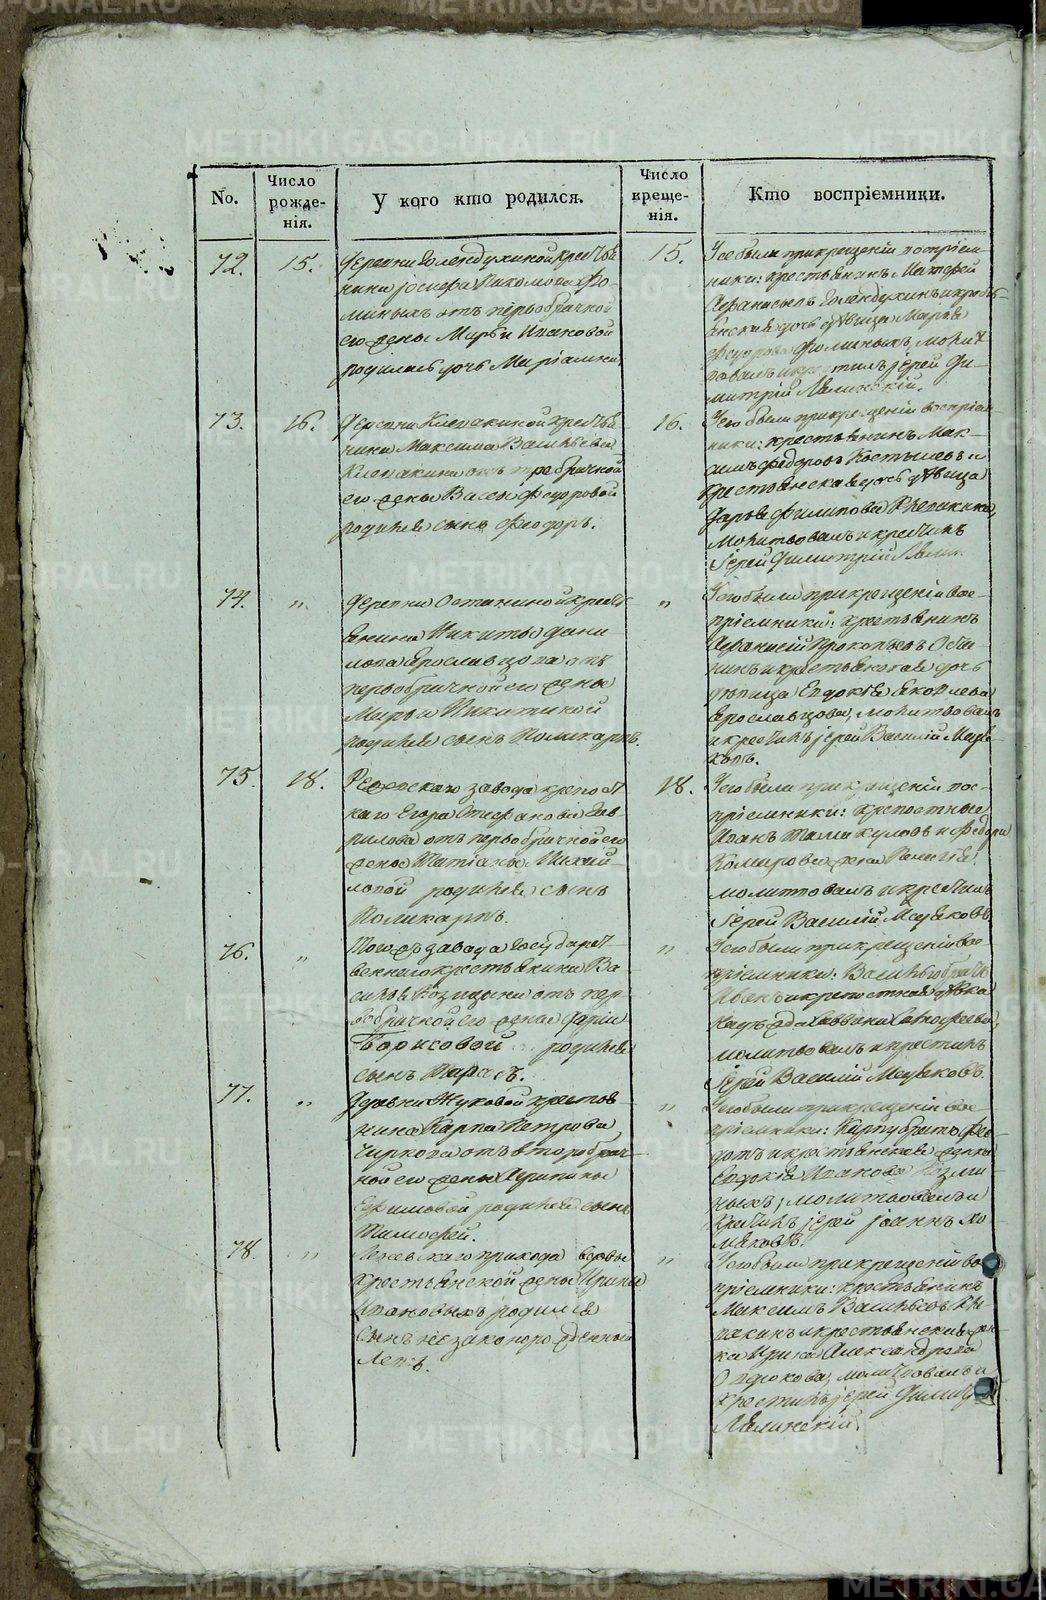 METRIKI.GASO-URAL.RU
No.
Число рожде-нія.
У кого кто родился.
Число креще-нія.
Кто воспріемники.
72.
15.
Деревни Голендухиной крестья
нина Іосифа Николаева Фо-
миныхъ отъ первобрачной
его жены Марьи Ивановой
родилась дочь Маріамна,
15.
У сего были при крещеніи воспріем
ники: крестьянинъ Матфей
Голендухинъ и кресть-
янская дочь дѣвица Марья
Ѳедорова Фоминыхъ, молит
вовалъ и крестилъ іерей Ди-
митрій Лялинскій.
73.
16.
Деревни Клевакиной крестья
нина Максима Васильева
Клевакина отъ требрачной
его жены Вассы Ѳедоровой
родился сынъ Ѳеодоръ.
16.
У сего были при крещеніи воспріем-
ники: крестьянинъ Мак-
симъ Ѳедоровъ Костылевъ и
крестьянская дочь дѣвица
Дарья Филипова Клевакина,
молитвовалъ и крестилъ
Іерей Димитрій Лялин
74.
"
Деревни Останиной кресть
янина Никиты Дани
лова Ярославцова отъ
первобрачной его жены
Марьи Никитиной
родился сынъ Поликарпъ.
"
У сего были при крещеніи вос-
пріемники: крестьянинъ
Прокопьевъ Оста-
нинъ и крестьянская дочь
дѣвица Евдокія Яковлева
Ярославцова, молитвовалъ
и крестилъ іерей Василій Медвѣ-
ковъ.
75.
18.
Режевскаго завода крепост
наго Егора Стефанова Гав
рилова отъ первобрачной его
жены Татіаны Михай-
ловой родился сынъ
Поликарпъ.
18.
У сего были при крещеніи вос-
пріемники: крепостные
Иванъ и Федора
Комарова жена Пелагія
молитвовалъ и крестилъ
Іерей Василій Медвѣковъ
76.
"
Того жъ завода государст
веннаго крестьянина Ва
силья Козицына отъ пер
вобрачной его жены Дарьи
Борисовой родился
сынъ Тарасъ.
"
У сего были при крещеніи вос
пріемники:
Иванъ и крепостная дѣвка
молитвовалъ и крестилъ
Іерей Василій Медвѣковъ.
77.
"
Деревни Жуковой крестья
нина Карпа Петрова
Чиркова отъ второбрач-
ной его жены Агрипины
Ефимовой родился сынъ
Тимоѳей.
"
У сего были при крещеніи вос-
пріемники: Карпу братъ Ѳе-
дотъ и крестьянская женка
Евдокія Иванова Козми-
ныхъ, молитвовалъ и
крестилъ іерей Іоаннъ Хо-
мяковъ.
78.
"
прихода вдовы
крестьянской жены Ирины
Ивановыхъ родился
сынъ незаконорожденный
Левъ.
"
У сего были при крещеніи во
пріемники: крестьянинъ
Максимъ Васильевъ Кле
вакинъ и крестьянская жен
ка Ирина Александрова
молитвовалъ и
крестилъ іерей Димитрій
Лялинскій